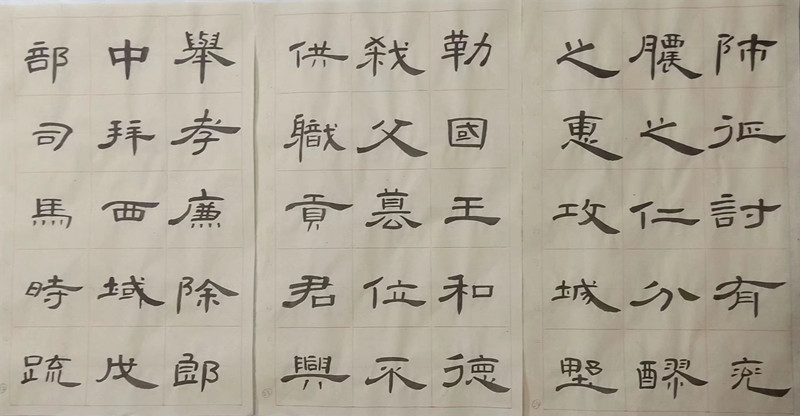 舉孝廉除郎
中拜西域戊
部司馬時疏
勒國王和德
弑父篡位不
供職貢君興
師征討有兗
膿之仁分醪
之惠攻城野